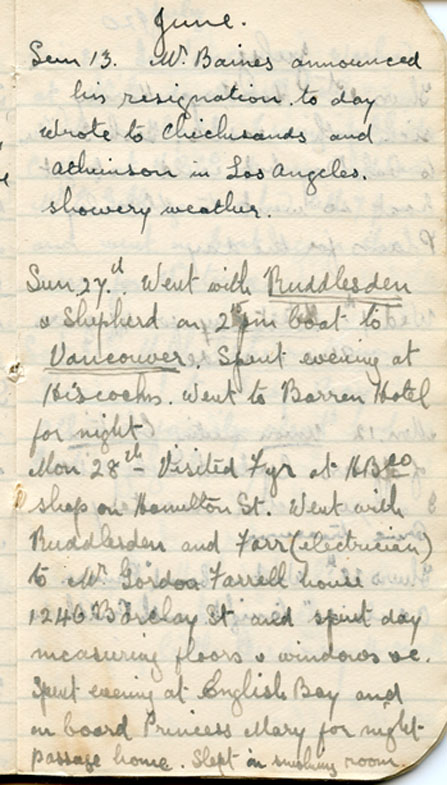 June.
Sun 13. Mr Baines announced
his resignation to day
wrote to Chicksands and
Atkinson in Los Angeles.
showery weather.
Sun 27th. Went with Ruddlesden
& Shepherd on 2 pm boat to
Vancouver. Spent evening at
Hiscocks. Went to Barren Hotel
for night
Mon 28th - Visited Fyr at HBCo
shop on Hamilton St. Went with
Ruddlesden and Farr (electrician)
to Mr Gordon Farrell house
1246 Barclay St and spent day
measuring floors & windows &c.
Spent evening at English Bay and
on board Princess Mary for night
passage home. Slept in smoking room.